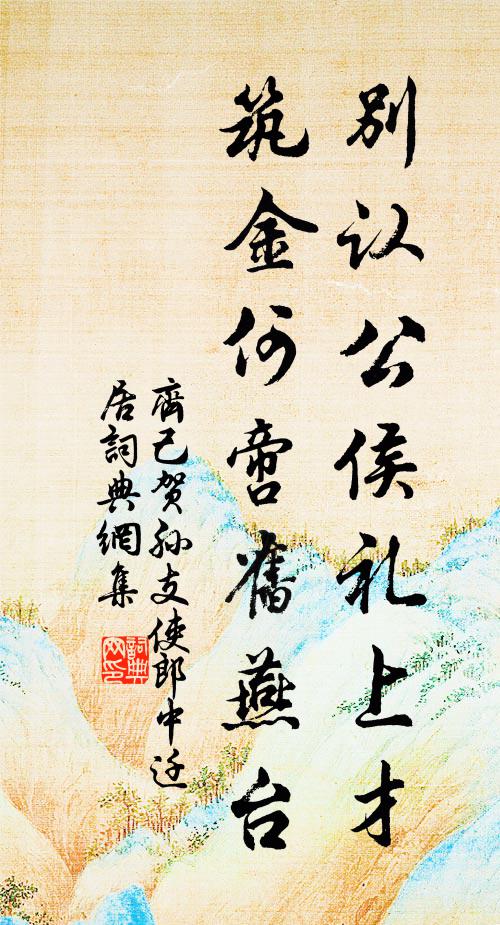 别认公侯礼上才
筑金何啻舊燕台
齊己贺孙支使郎中迁
居詞典網集
詞典
网印